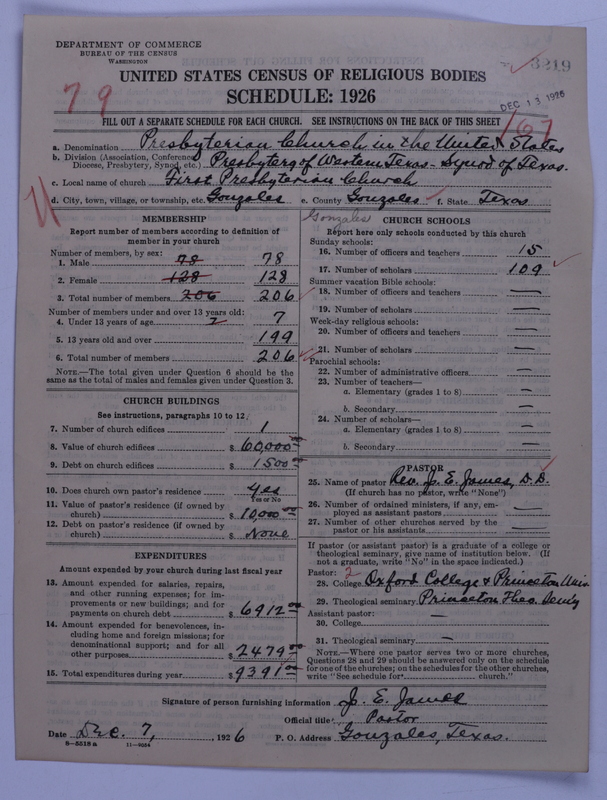 DEPARTMENT OF COMMERCE
BUREAU OF THE CENSUS
WASHINGTON
3219
UNITED STATES CENSUS OF RELIGIOUS BODIES
79
SCHEDULE: 1926
DEC 13 1926
FILL OUT A SEPARATE SCHEDULE FOR EACH CHURCH. SEE INSTRUCTIONS ON THE BACK OF THIS SHEET
167
a. Denomination Presbyterian Church in the United States
b. Division (Association, Conference, Diocese, Presbytery, Synod, etc.) Presbytery of Western Texas - Synod of Texas.
c. Local name of church First Presbyterian Church
d. City, town, village, or township, etc. Gonzales e. County Gonzales f. State Texas
Gonzales
MEMBERSHIP
Report number of members according to definition of
member in your church
Number of members, by sex:
1. Male 78 78
2. Female 128 128
3. Total number of members 206 206
Number of members under and over 13 years old:
4. Under 13 years of age 7 7
5. 13 years old and over 199
6. Total number of members 206
NOTE.—The total given under Question 6 should be
same as the total of males and females given under Question 3.
CHURCH BUILDINGS
See instructions, paragraphs 10 to 12
7. Number of church edifices 1
8. Value of church edifices $ 60,000 00
9. Debt on church edifices $ 1500 00
10. Does church own pastor's residence yes
Yes or No
11. Value of pastor's residence (if owned by
church) $ 10,000 00
12. Debt on pastor's residence (if owned by
church) $ None
EXPENDITURES
Amount expended by your church during last fiscal year
13. Amount expended for salaries, repairs,
and other running expenses; for im-
provements or new buildings; and for
payments on church debt $ 6912 00
14. Amount expended for benevolences, in-
cluding home and foreign missions; for
denominational support; and for all
other purposes $ 2479 00
15. Total expenditures during year $ 9391 00
CHURCH SCHOOLS
Report here only schools conducted by this church
Sunday schools:
16. Number of officers and teachers 15
17. Number of scholars 109
Summer vacation Bible schools:
18. Number of officers and teachers —
19. Number of scholars —
Week-day religious schools:
20. Number of officers and teachers —
21. Number of scholars —
Parochial schools:
22. Number of administrative officers —
23. Number of teachers—
a. Elementary (grades 1 to 8) —
b. Secondary —
24. Number of scholars—
a. Elementary (grades 1 to 8) —
b. Secondary —
PASTOR
25. Name of pastor Rev. J. E. James, D.D.
(If church has no pastor, write "None")
26. Number of ordained ministers, if any, em-
ployed as assistant pastors —
27. Number of other churches served by the
pastor or his assistants —
If pastor (or assistant pastor) is a graduate of a college or
theological seminary, give name of institution below. (If
not a graduate, write "No" in the space indicated.)
Pastor: 2
28. College Oxford College & Princeton Univ
29. Theological seminary Princeton Theo. Semy
Assistant pastor:
30. College —
31. Theological seminary —
NOTE.—Where one pastor serves two or more churches,
Questions 28 and 29 should be answered only on the schedule
for one of the churches; on the schedules for the other churches,
write "See schedule for church."
Signature of person furnishing information J. E. James
Official title Pastor
Date Dec. 7, 1926 P. O. Address Gonzales, Texas.
8—5318a 11—9264